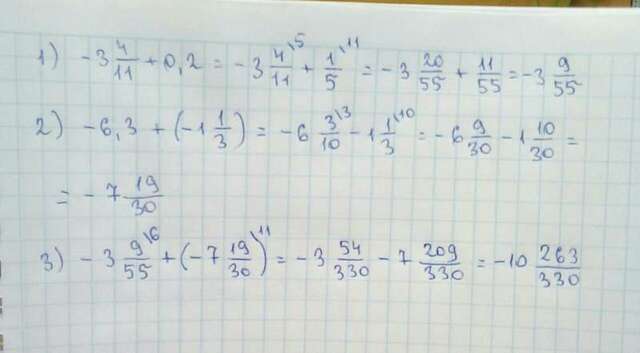 1) -3 4/11 + 0,2 = -3 4/11 \5 + 1/5 \11 = -3 20/55 + 11/55 = -3 9/55
2) -6,3 + (-1 1/3) = -6 3/10 \3 - 1 1/3 \10 = -6 9/30 - 1 10/30 =
= -7 19/30
3) -3 9/55 \6 + (-7 19/30) \11 = -3 54/330 - 7 209/330 = -10 263/330